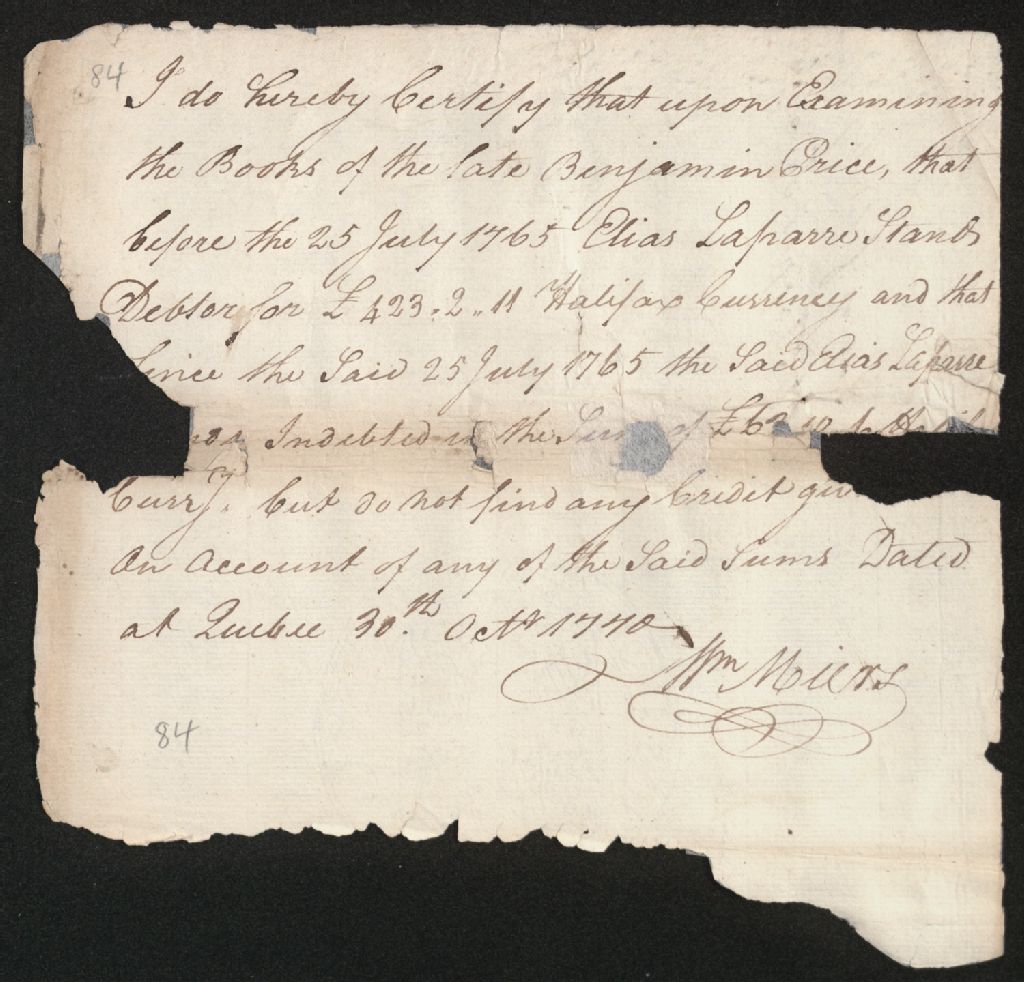 84
I do hereby Certify that upon Examining
the Books of the late Benjamin Price, that
before the 25 July 1765 Elias Laparre Stands
Debtor for £ 423.2.11 Halifax Currency and that
Since the Said 25 July 1765 the Said Elias Laparre
Indebted in the Sum of £
Curry. but do not find any Credit
On Account of any of the Said Sums Dated
at Quebec 30.th Octr 1770
Wm Miers
84